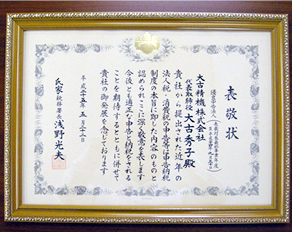 表敬状
大古精機株式会社
代表取締役 大古秀子殿
貴社から提出された近年の
法人税、消費税の申告等は申告納税
制度の本旨に即した内容のものと
認められここに深く敬意を表します
今後とも適正な申告と納税をされる
ことを期待するとともに併せて
貴社の御発展を念じております
平成二十五年五月二十八日
氏家税務署長 浅野光夫